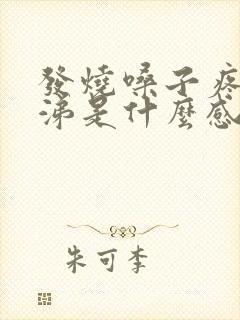 發燒嗓子疼
涕是什麼感
朱可李